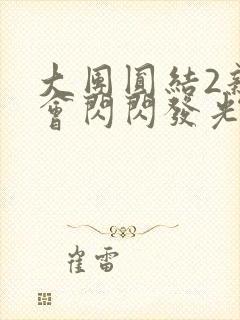 大團圓結2
會閃閃發光
崔雷